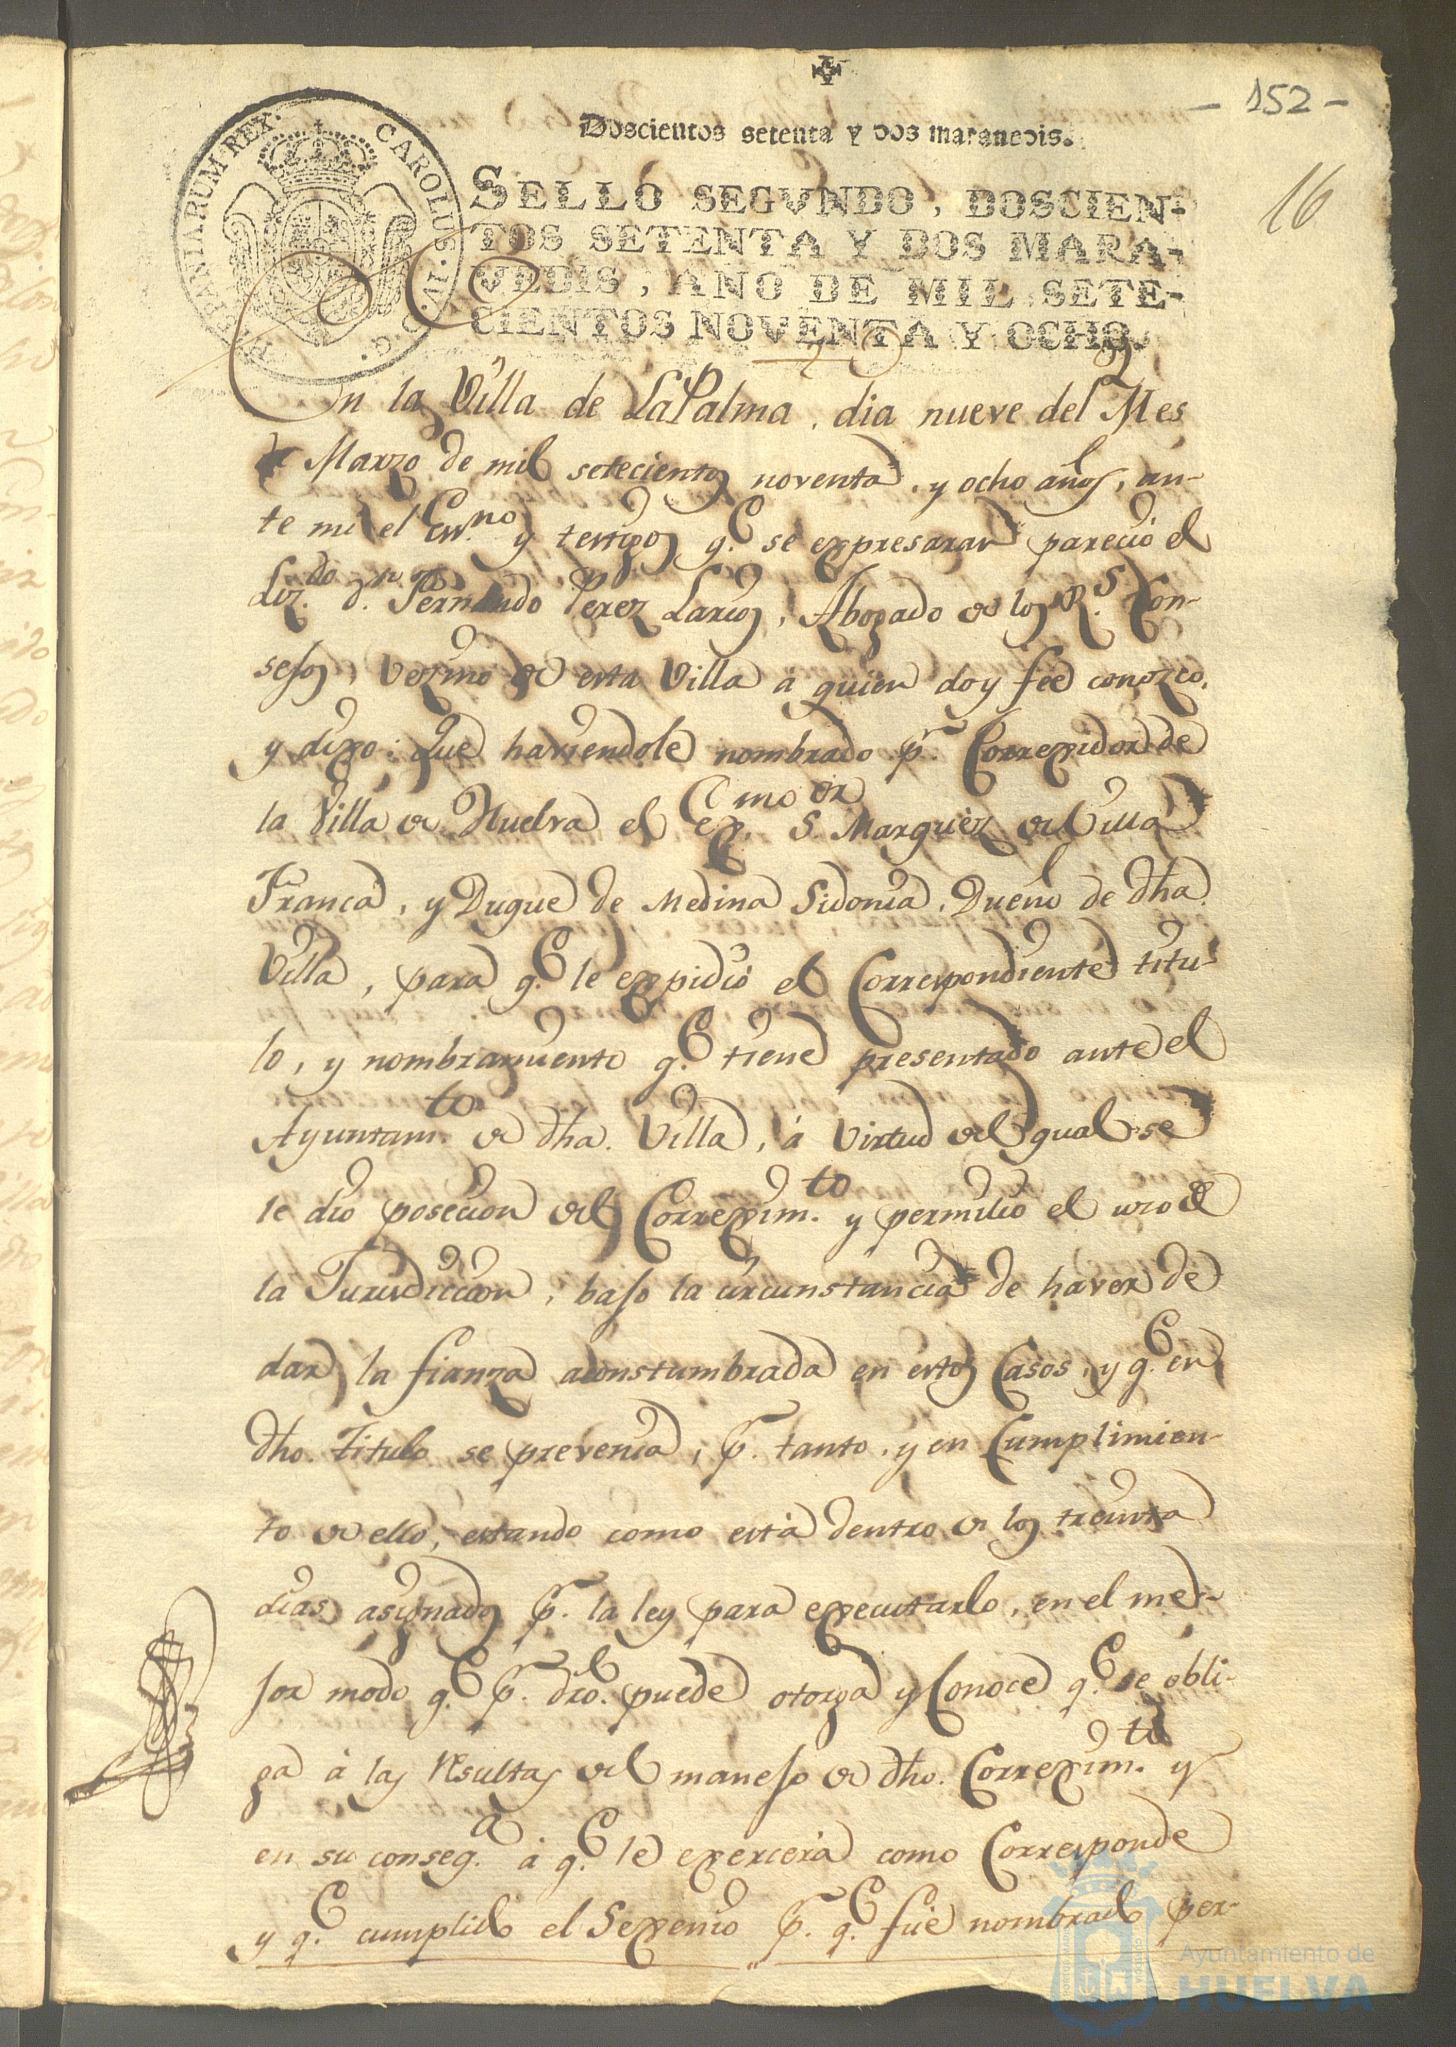 - 152 -
16
Doscientos setenta y dos maravedis.
SELLO SEGVNDO, DOSCIEN-
TOS SETENTA Y DOS MARA-
VEDIS, AÑO DE MIL SETE-
CIENTOS NOVENTA Y OCHO.
CAROLUS. IV. D. G. HISPANIARUM REX.
En la Villa de La Palma, dia nueve del Mes
de Marzo de mil setecientos noventa, y ocho años, an-
te mi el Esn.no y testigos q.e se expresaran parecio el
Liz.do d.n Fernando Perez Larios, Abogado de los R.s Con-
sejos, Vezino de esta Villa á quien doy feé conozco,
y dixo: Que haviendole nombrado p.r Correxidor de
la Villa de Huelva el Ex.mo S.or Marquez de Villa
Franca, y Duque de Medina Sidonia, Dueño de dha.
Villa, para q.e le expidió el Correspondiente titu-
lo, y nombramiento q.e tiene presentado ante el
Ayuntam.to de dha. Villa, á virtud del qual se
le dio posecion del Correxim.to y permitio el uzo de
la Jurisdiccion, bajo la circunstancia de haver de
dar la fianza aconstumbrada en estos Casos, y q.e en
dho. Titulo se prevenia, p.r tanto, y en Cumplimien-
to de ello, estando como está dentro de los treinta
dias asignados p.r la ley para executarlo, en el me-
jor modo q.e p.r dro. puede otorga y Conoce q.e se obli-
ga à las resultas del manejo de dho. Correxim.to y
en su conseq.a á q.e le exercerá como Corresponde
y q.e cumplido el Sexenio p.r q.e fue nombrado per-
Ayuntamiento de
HUELVA